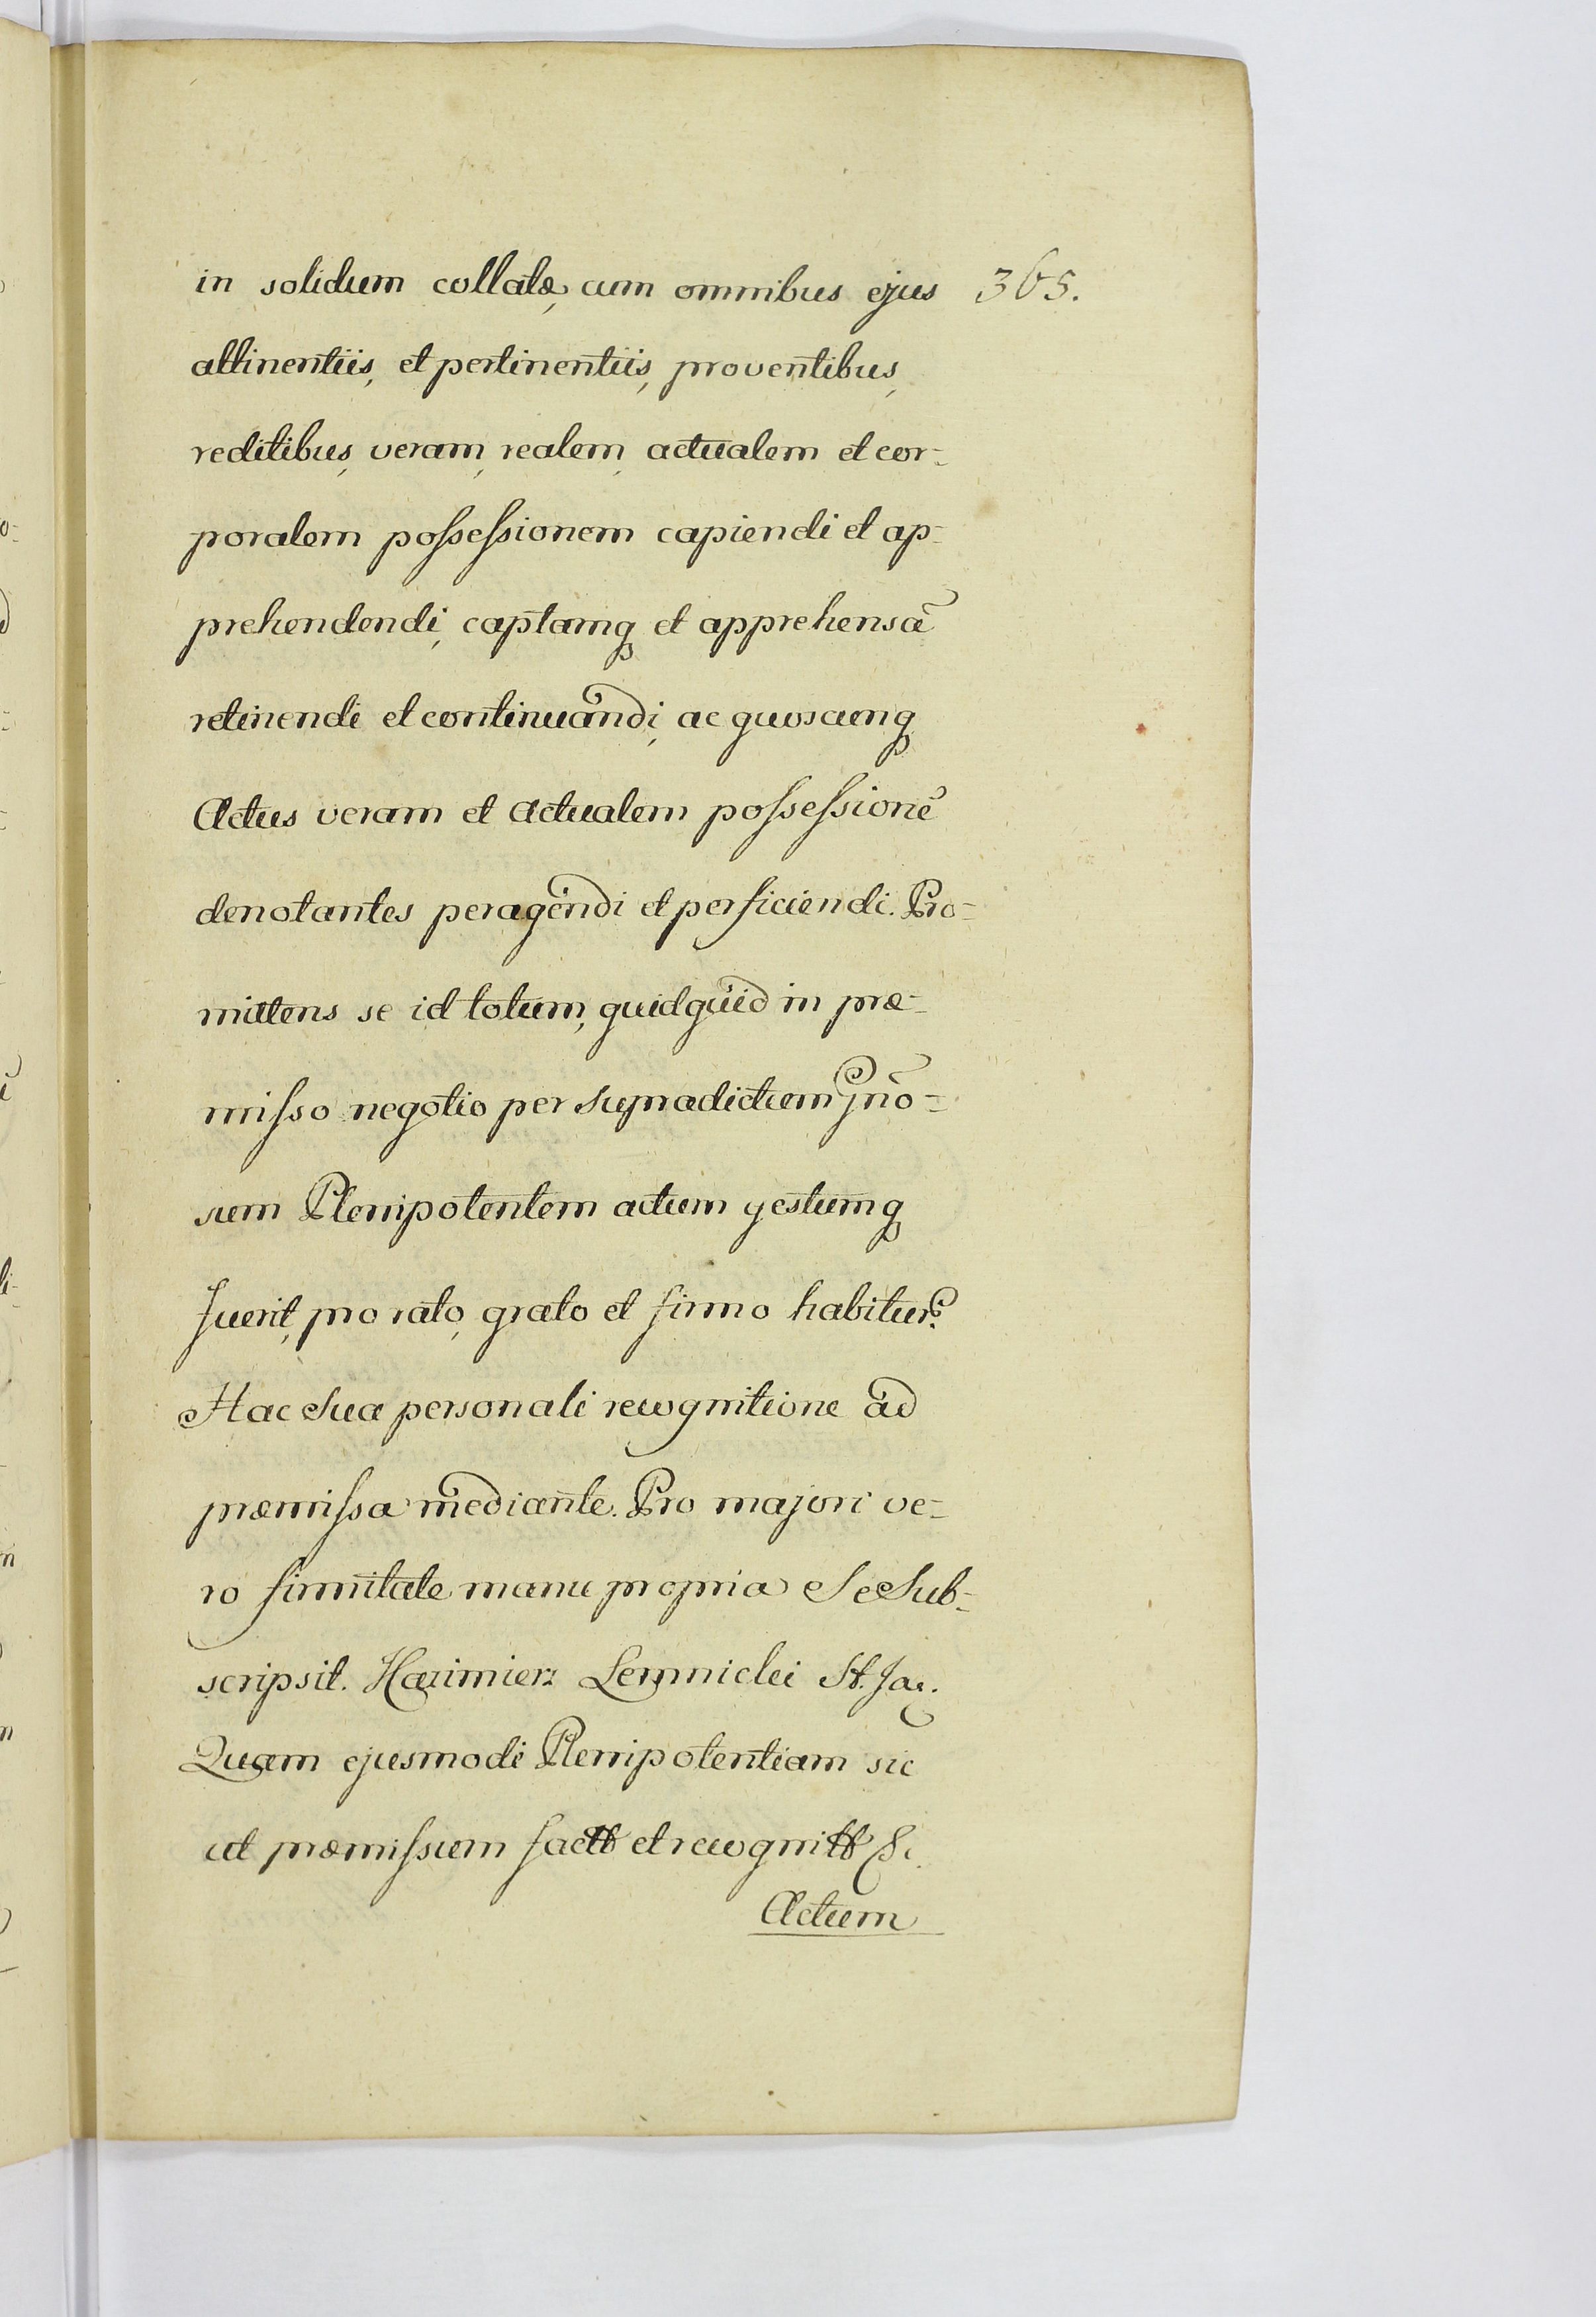 in solidum collatæ, cum omnibus ejus 365.
attinentiis, et pertinentiis, proventibus,
reditibus, veram, realem, actualem et cor-
poralem possessionem capiendi et ap-
prehendendi, captamq et apprehensã
retinendi et continuandi, ac quoscunq
Actus veram et actualem possessionẽ
denotantes peragendi et perficiendi. Pro-
mittens se id totum, quidquid in præ-
misso negotio per supradictum Gño-
sum Plenipotentem actum gestumq
fuerit, pro rato, grato et firmo habitur9.
Hac sua personali recognitione ad
præmissa mediante. Pro majori ve-
ro firmitate manu propria Se Sub-
scripsit. Kazimierz
Quam ejusmodi Plenipotentiam sic
ut præmissum et &c.
Actum